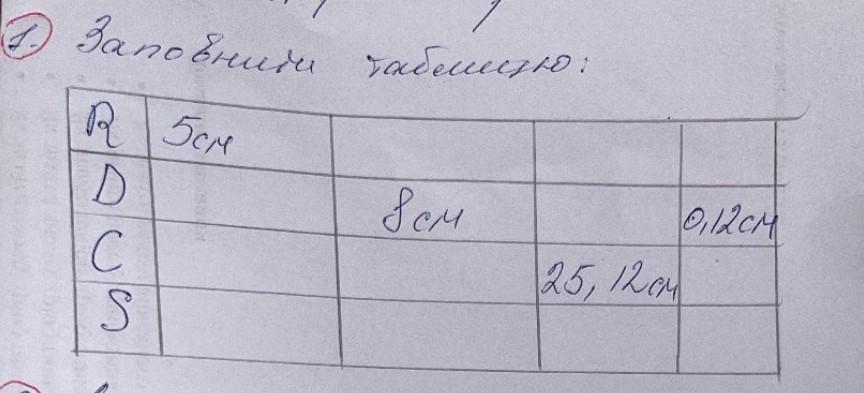 1. Заповнити таблицю:
R 5см
D 8см 0,12см
C 25,12см
S